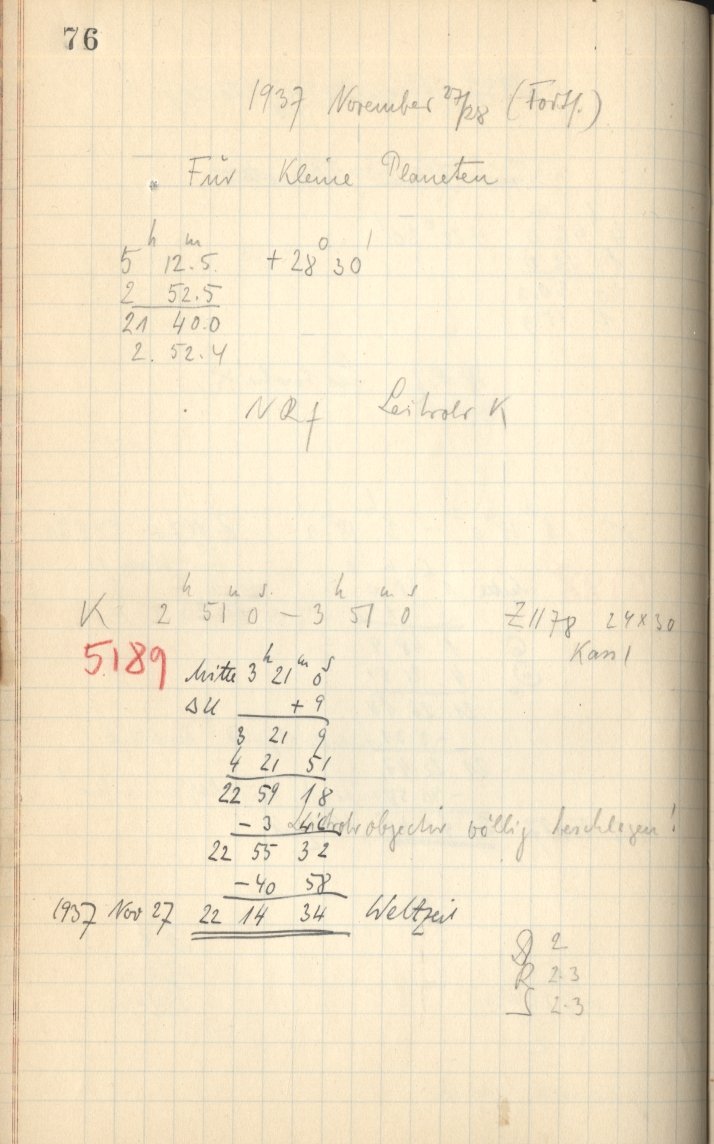 76
1937 November 27/28 (Forts.)
Für Kleine Planeten
5h 12m.5 +28° 30'
2 52.5
21 40.0
2. 52.4
Leitrohr K
K 2h 51m 0s – 3h 51m 0s Z1178 24x30
5189 Kass 1
Mitte 3h 21m 0s
ΔU +9
3 21 9
4 21 51
22 59 18
–3 46
Leitrohrobjectiv völlig beschlagen!
22 55 32
–40 58
1937 Nov 27 22 14 34 Weltzeit
2
R 2.3
S 2.3